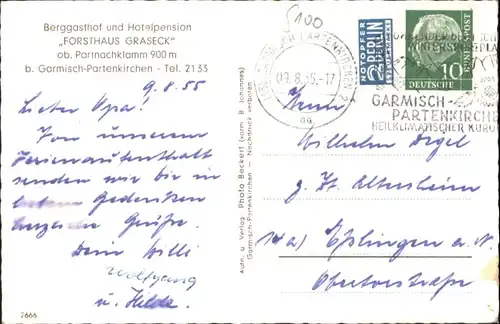 Berggasthof und Hotelpension
„FORSTHAUS GRASECK"
ob. Partnachklamm 900 m
b. Garmisch-Partenkirchen - Tel. 2133
9.8.55
Lieber Opa!
Von unserem
Ferienaufenthalt
senden wir dir in
Gedenken
herzliche Grüße.
Dein Willi
Wolfgang
u. Hilde
7666
Auto. u. Verlag Photo Beckert (vorm. B. Johannes)
Garmisch-Partenkirchen - Nachdruck verboten
100
09.8.55.-17
NOTOPFER
2 BERLIN
STEUERMARKE
DEUTSCHE
BUNDESPOST
10
GARMISCH-
PARTENKIRCHEN
HEILKLIMATISCHER KURORT
Herrn
Wilhelm
z. Zt. Altersheim
14a) Eßlingen a. N.
Obertorstraße